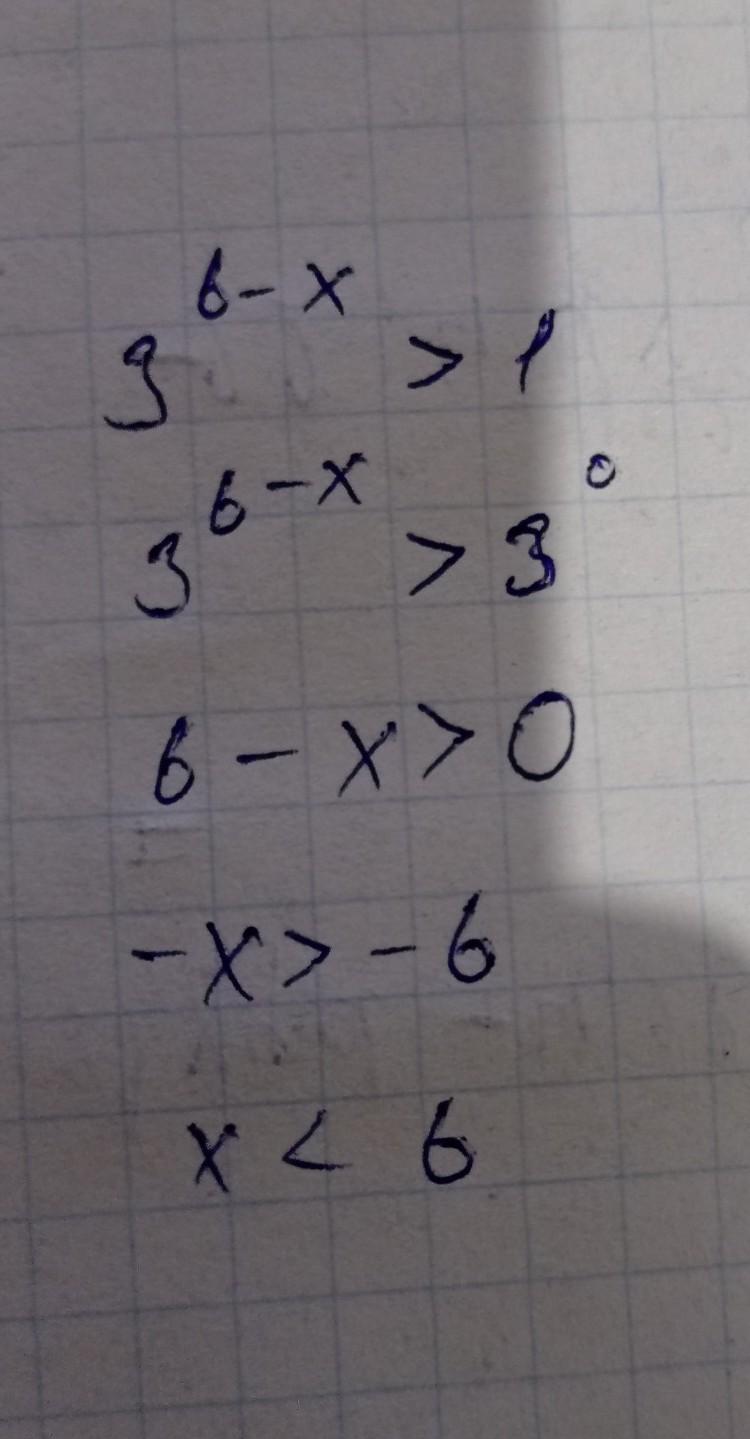 3^{6-x} > 1
3^{6-x} > 3^0
6 - x > 0
-x > -6
x < 6